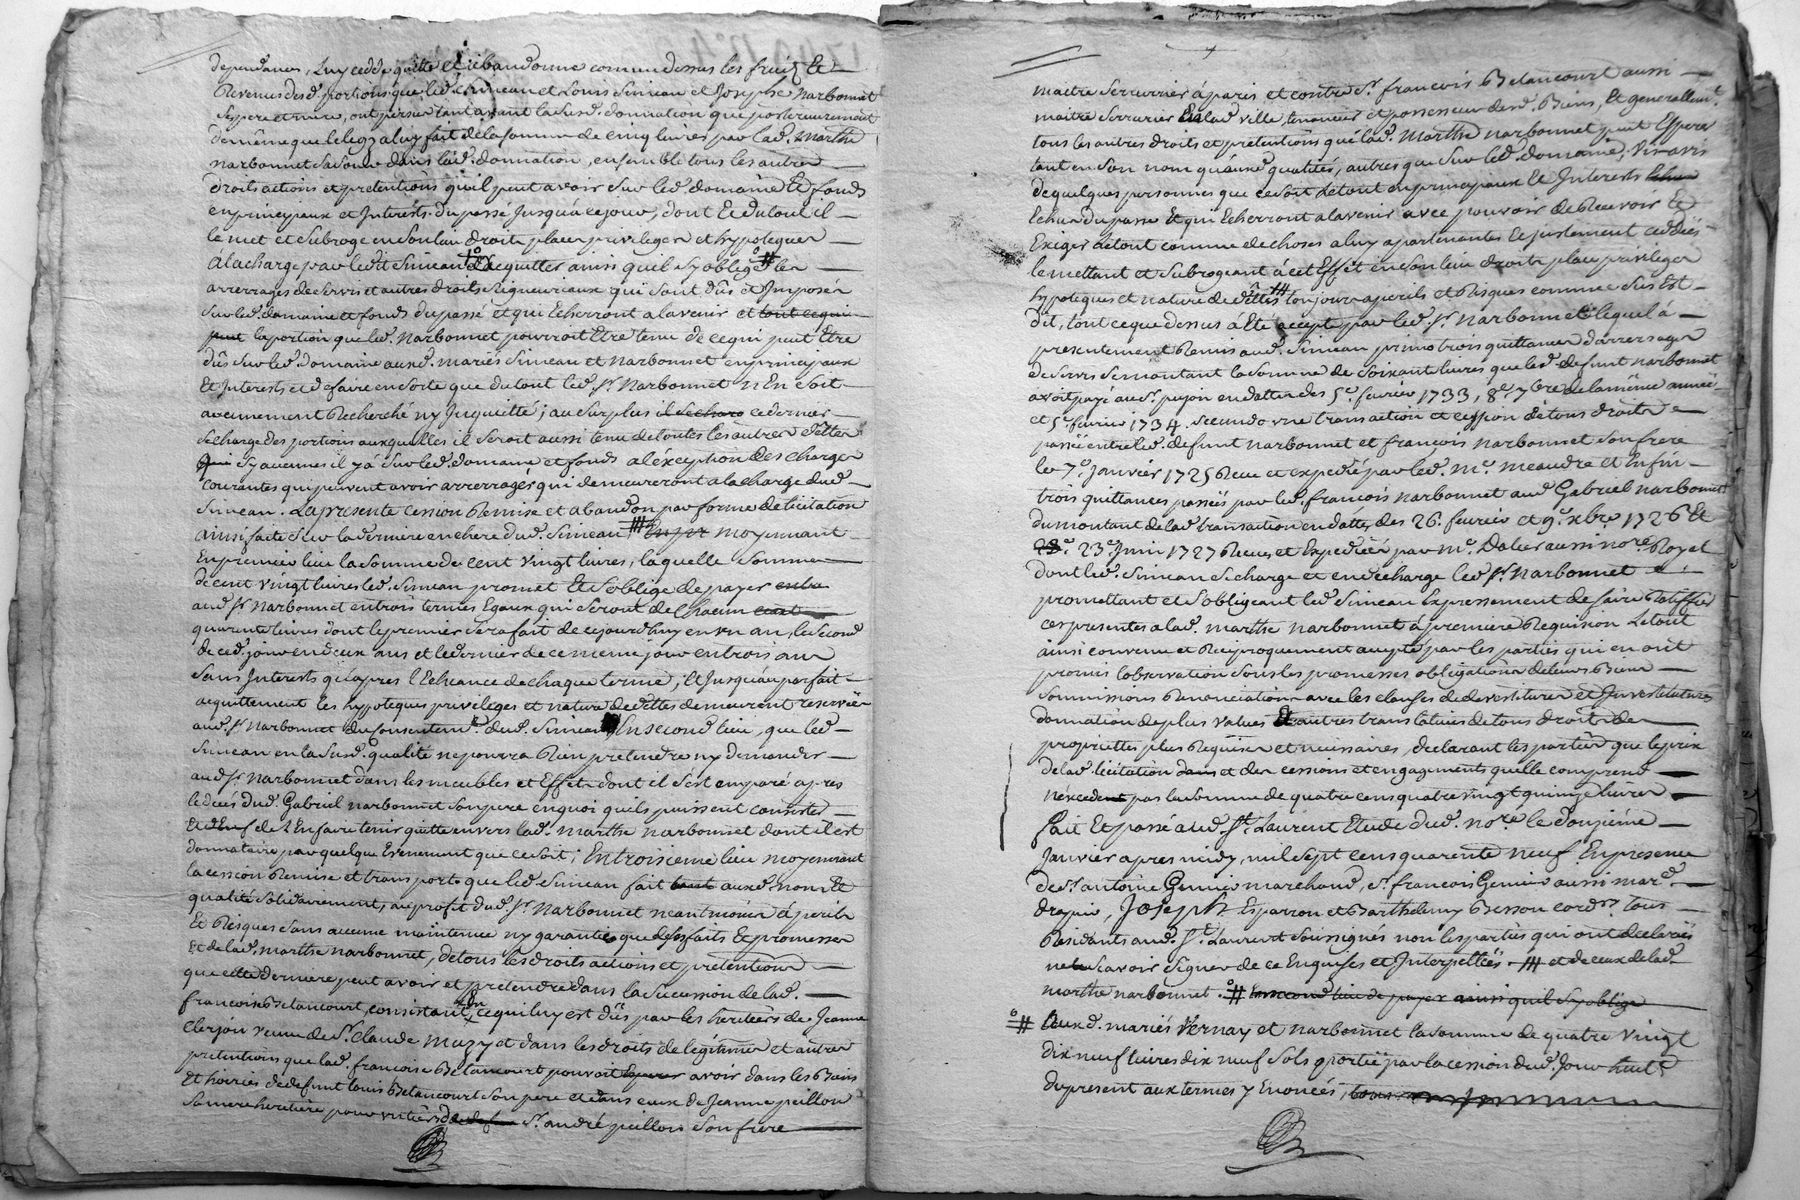 dependances, Luy cedde quitte et abandonne comme dessus les fruits Et
Revenus desd. portions que led. Simeon et Louis Simeon et Joseph Narbonnet
Ses pere et mere, ont perçus tant avant lasusd. donnation que posterieurement
demême que le legs aluy fait delasomme de cinq livres par lad. Marthe
narbonnet Sa dans lad. donnation, ensemble tous les autres
droits actions et pretentions qu'il peut avoir Sur led. domaine Et fonds
enprincipaux et Interets du passé Jusqu'a cejour, dont Et dutout il
le met et Subroge en Son lieu droits place privileges et hypoteques
Alacharge par ledit Simeon d'acquitter ainsi quil Sy oblige # les
arrerrages de Servis et autres droits Seigneureaux qui sont dûs et Imposés
Sur led. domaine et fonds dupassé et qui Echerront alavenir et tout cequi
peut la portion que led. Narbonnet pourroit Etre tenu de cequi peut Etre
dû Sur led. domaine auxd. mariés Simeon et Narbonnet enprincipaux
Et Interets et defaire ensorte que dutout led. Sr. Narbonnet n'En Soit
aucunement Recherché ny Inquietté; au Surplus il Secharg cedernier
Secharge des portions auxquelles il Seroit aussi tenu detoutes les autres dettes
Qui Sy aucunes il y a Sur led. domaine et fonds aléxception des charges
courantes qui peuvent avoir arrerragés qui demeureront alacharge dud.
Simeon. Lapresente cession Remise et abandon par forme de licitation
ainsi faite Sur laderniere enchere dud. Simeon moyennant
En premier lieu la Somme de cent vingt livres, laquelle Somme
de cent vingt livres led. Simeon promet Et S'oblige de payer
aud. Sr. Narbonnet entrois termes Egaux qui Seront de chacun cent
quarente livres dont lepremier Serafait de cejourd'huy en un an, le Second
de ced. jour endeux ans et ledernier de cememe jour entrois ans
Sans Interets qu'apres l'Echeance de chaque terme, Et Jusqu'au parfait
acquittement les hypoteques privileges et nature de dettes demeurent reservées
aud. Sr. Narbonnet du consentemt. dud. Simeon, En second lieu, que led.
Simeon en la Susd. qualité nepourra Rien pretendre ny demander
aud. Sr. Narbonnet dans les meubles et Effets dont il S'est emparé apres
ledeces dud. Gabriel narbonnet Sonpere enquoi quils puissent consister
Et de l'Enfaire tenir quitte envers lad. marthe narbonnet dont il est
donnataire par quelque Evenement que ce soit; En troisieme lieu moyennant
la cession Remise et transports que led. Simeon fait tant auxd. noms Et
qualité Solidairement, au profit dud. Sr. Narbonnet neantmoins à perils
Et Risques Sans aucune maintenue ny garantie que deses faits Et promesses
et de lad. marthe narbonnet, de tous les droits actions et prétentions
que cette derniere peut avoir et pretendre dans la Succession de lad.
francoise Betancourt, consistant cequi luy est dûs par les heritiers de Jeanne
Clerjon veuve de Sr. Claude Mazy et dans les droits de legitime et autres
pretentions que lad. francoise Betancourt pouvoit avoir dans les Biens
Et hoiries dedefunt louis Betancourt Sonpere et dans ceux de Jeanne peillon
Samere heritiere pour un tiers Sr. andré peillon Sonfrere
maitre Serrurier aparis et contre Sr. francois Betancourt aussi
maitre Serrurier Enlad. ville, tenancier et possesseur desd. Biens, Et generallemt.
tous les autres droits et pretentions que lad. Marthe narbonnet peut Esperer
tant en Son nom qu'auxd. qualités, autres que Sur led. domaine, vis-avis
de quelques personnes que ce soit Letout en principaux Et Interets
Echus du passé Et qui Echerront alavenir avec pouvoir de Recevoir Et
Exiger Letout comme de choses aluy apartenantes Et justement ceddées
le mettant et Subrogeant à cet Effet en Son lieu droits place privileges
hypoteques et nature de dettes toujours aperils et Risques comme Sus Est
dit, tout ceque dessus à Eté accepté par led. Sr. Narbonnet lequel à
presentement Remis aud. Simeon primo trois quittances d'arrerrages
de Servis Semontant la Somme de Soixante livres que led. defunt narbonnet
avoit payé au Sr. pujon en datte des 5e. fevrier 1733, 8e. 7bre de la même année
et 5e. fevrier 1734. Secundo une transaction et cession detous droits
passée entre led. defunt narbonnet et francois narbonnet Son frere
le 7e. Janvier 1725 Reçue et expediée par led. Me. Meaudre et Enfin
trois quittances passées par led. francois narbonnet aud. Gabriel narbonnet
dumontant delad. transaction en datte des 26. fevrier et 9e. xbre 1726 Et
23e. Juin 1727 Reçues et Expediées par Me. Dalier aussi nore. Royal
dont led. Simeon Secharge et en décharge led. Sr. Narbonnet
promettant et S'obligeant led. Simeon Expressement de faire Ratiffier
ces presentes alad. marthe narbonnet à premiere Requision Letout
ainsi convenu et Reciproquement accepté par les parties qui en ont
promis l'observation Sous les promesses obligations deleurs Biens
Soumissions Renonciations avec les clauses de devestitures et Investitures
donnation de plus values Et autres translatives de tous droits de
proprietté plus Requises et necessaires, declarant les parties que leprix
delad. licitation dans et des cessions et engagements quelle comprend
n'excedent pas la Somme de quatre cens quatre vingt quinze livres
fait Et passé aud. St. Laurent Etude dud. nore. le douzieme
Janvier apres midy, mil Sept cens quarente neuf En presence
de Sr. antoine Genuis marchand, Sr. francois Genuis aussi mard.
drapier, Joseph Esparron et Barthelemy Besson cordrs. tous
Residants aud. St. Laurent Soussignés non les parties qui ont declarées
ne Scavoir Signer de ce Enquises et Interpellées. # et de ceux de lad.
marthe narbonnet. # En second lieu de payer ainsi quil Sy oblige
# Auxd. mariés Vernay et narbonnet la Somme de quatre Vingt
dix neuf livres dix neuf Sols portée par la cession dud. Jour
du present aux termes y Enoncés,